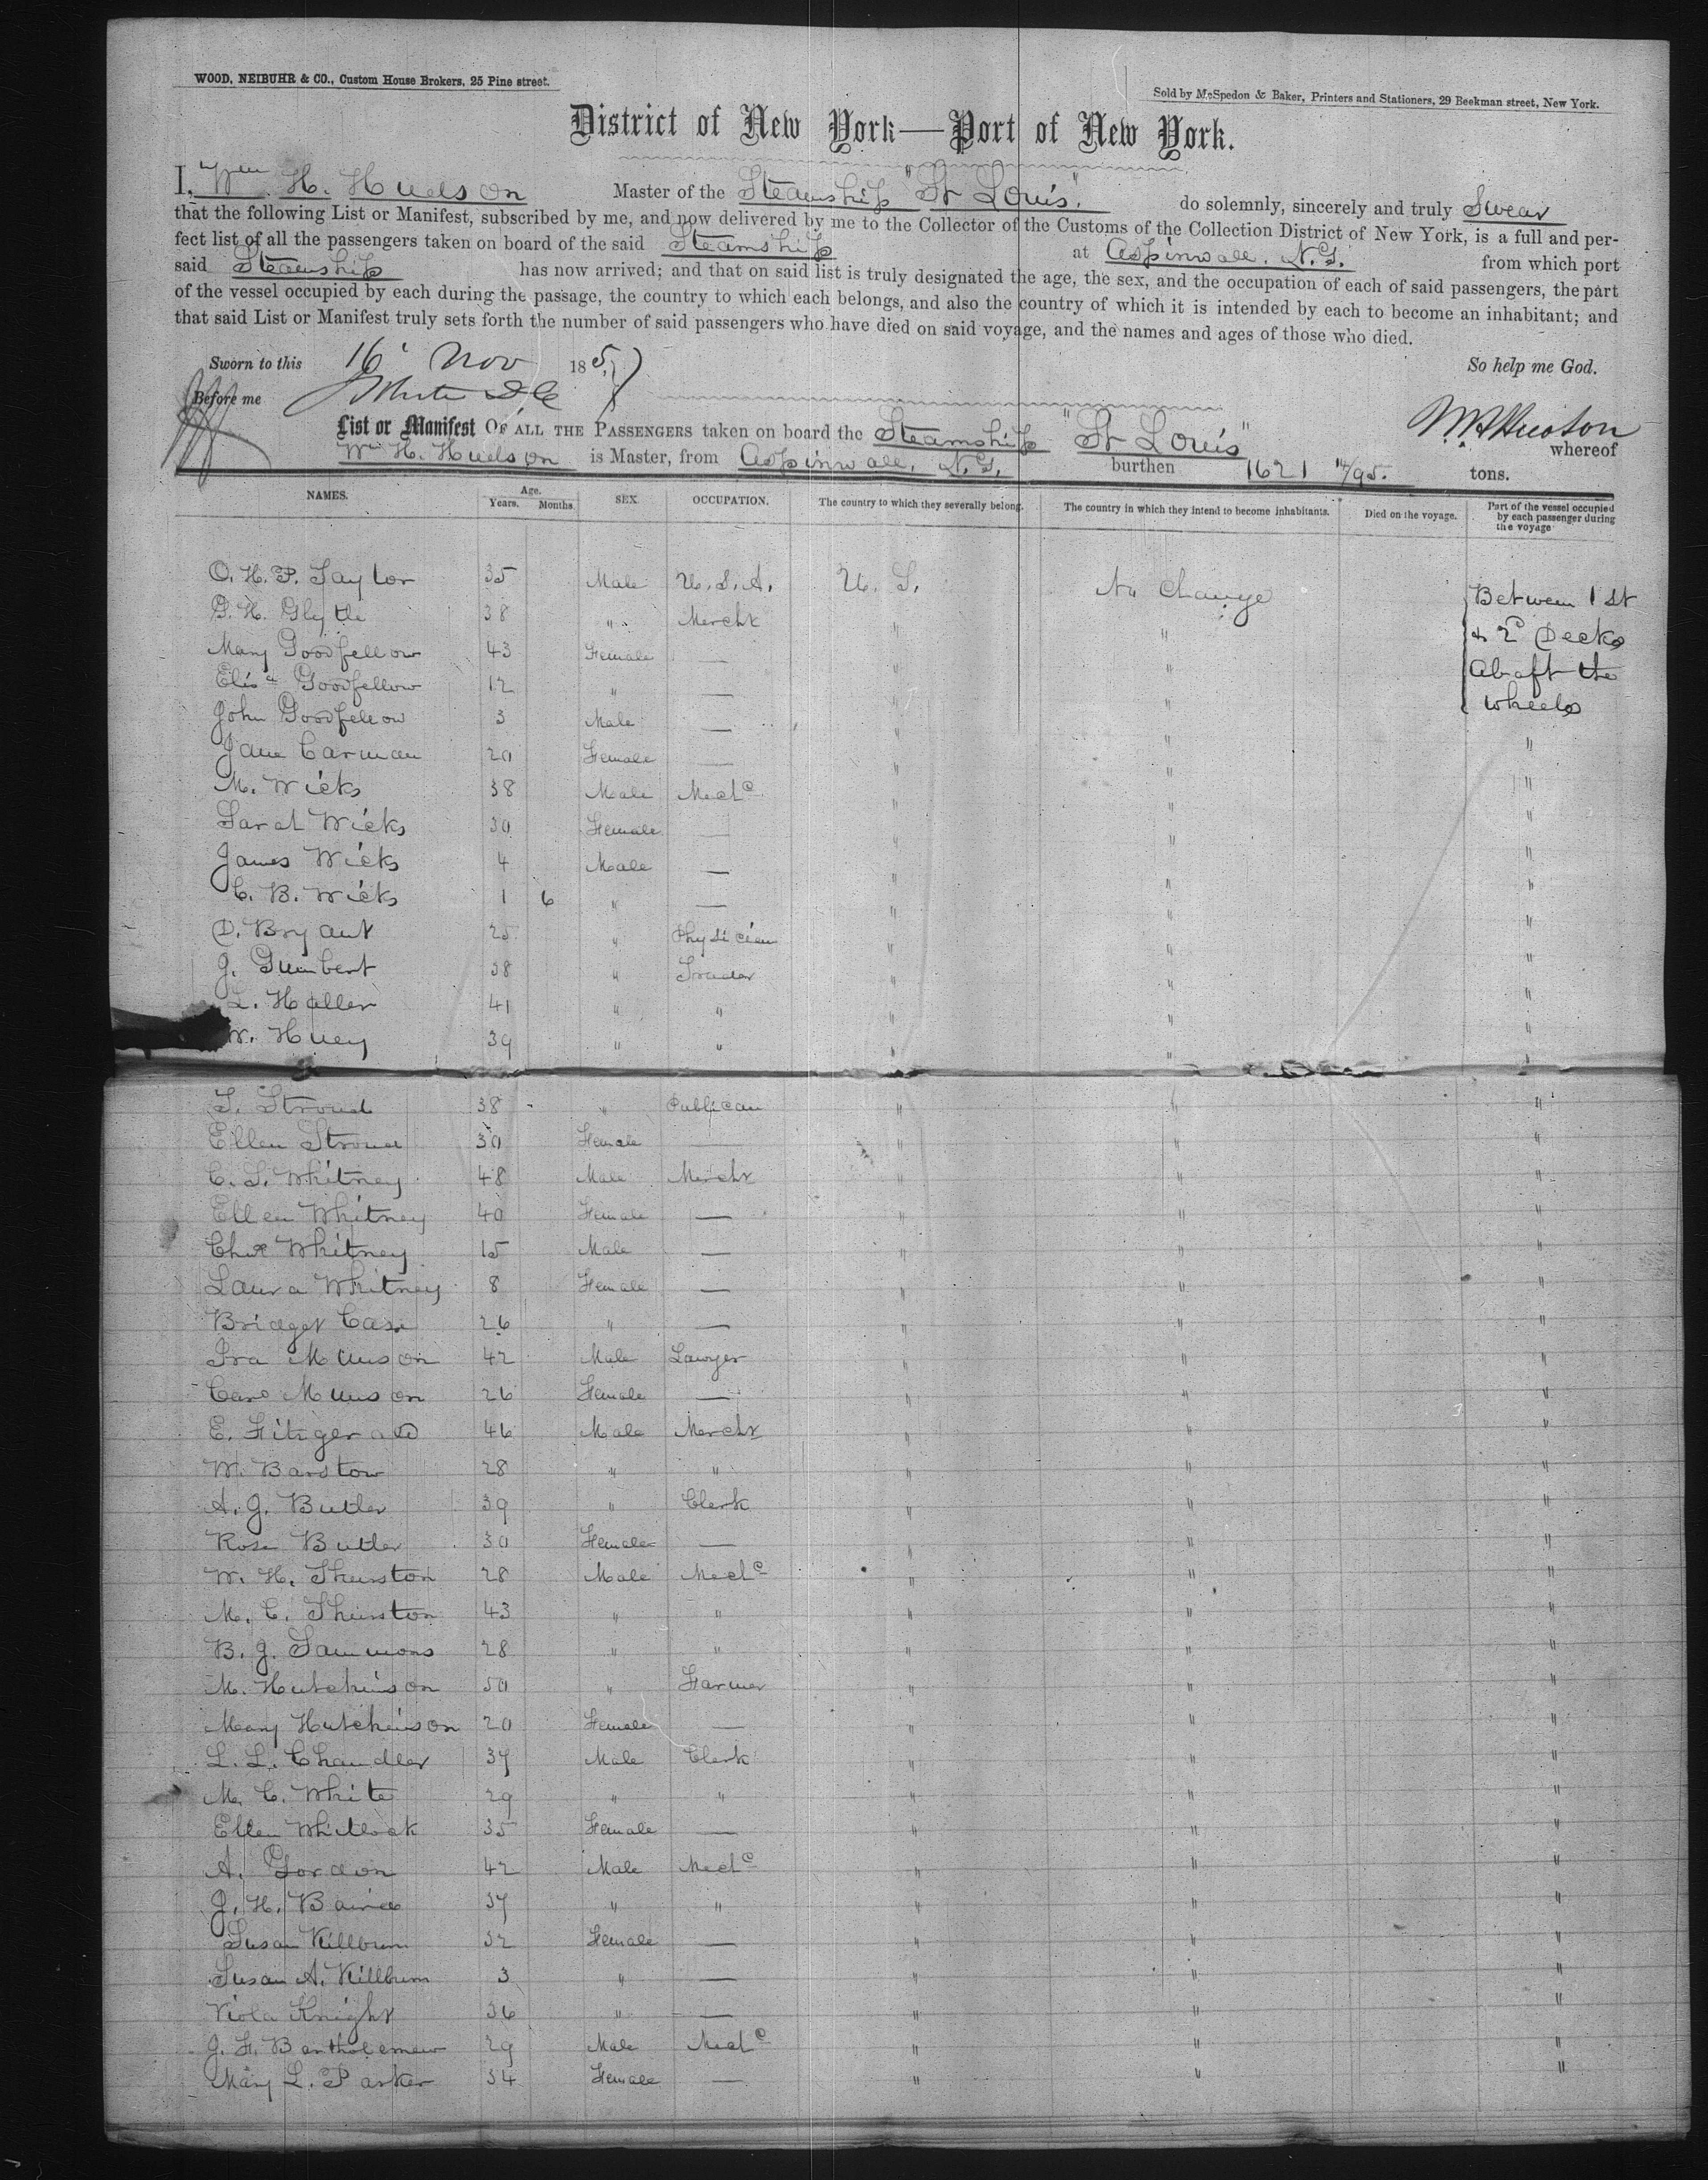 WOOD, NEIBUHR & CO., Custom House Brokers, 25 Pine street.
Sold by McSpedon & Baker, Printers and Stationers, 29 Beekman street, New York.
District of New York—Port of New York.
I, Wm H. Hudson Master of the Steamship "St Louis." do solemnly, sincerely and truly Swear
that the following List or Manifest, subscribed by me, and now delivered by me to the Collector of the Customs of the Collection District of New York, is a full and per-
fect list of all the passengers taken on board of the said Steamship at Aspinwall. N.G. from which port
said Steamship has now arrived; and that on said list is truly designated the age, the sex, and the occupation of each of said passengers, the part
of the vessel occupied by each during the passage, the country to which each belongs, and also the country of which it is intended by each to become an inhabitant; and
that said List or Manifest truly sets forth the number of said passengers who have died on said voyage, and the names and ages of those who died.
Sworn to this 16 Nov 1857 So help me God.
Before me
List or Manifest OF ALL THE PASSENGERS taken on board the Steamship "St Louis" whereof
Wm H. Hudson is Master, from Aspinwall, N.G. burthen 1621 14/95. tons.
NAMES. Age. Years. Months. SEX. OCCUPATION. The country to which they severally belong. The country in which they intend to become inhabitants. Died on the voyage. Part of the vessel occupied by each passenger during the voyage
O. H. P. Taylor 35 Male U.S.A. U.S. No Change Between 1st
38 " Mercht " " & 2d Decks
Mary Goodfellow 43 Female — " " Abaft the
Elisa Goodfellow 12 " — " " Wheels
John Goodfellow 3 Male — " "
Jane Carman 20 Female — " " "
M. Wicks 38 Male Mechc " " "
Sarah Wicks 30 Female — " " "
James Wicks 4 Male — " " "
C. B. Wicks 1 6 " — " " "
D. Bryant 25 " Physician " " "
J. Gumbert 38 " Trader " " "
L. Haller 41 " " " " "
W. Huey 39 " " " " "
S. Stroud 38 " Publican " " "
Ellen Stroud 30 Female — " " "
C. S. Whitney 48 Male Mercht " " "
Ellen Whitney 40 Female — " " "
Whitney 15 Male — " " "
Laura Whitney 8 Female — " " "
Bridget Case 26 " — " " "
Ira Munson 42 Male Lawyer " " "
Caro Munson 26 Female — " " "
E. Fitzgerald 46 Male Mercht " " "
W. Barstow 28 " " " " "
A. J. Butler 39 " Clerk " " "
Rose Butler 30 Female — " " "
W. H. Thurston 28 Male Mechc " " "
M. C. Thurston 43 " " " " "
B. J. Sammons 28 " " " " "
M. Hutchinson 50 " Farmer " " "
Mary Hutchinson 20 Female — " " "
L. L. Chandler 37 Male Clerk " " "
M. C. White 29 " " " " "
Ellen Whitlock 35 Female — " " "
A. Gordon 42 Male Mechc " " "
J. H. Baird 37 " " " " "
Susan Killburn 32 Female — " " "
Susan A. Killburn 3 " — " " "
Viola Knight 36 " — " " "
J. F. Bartholemew 29 Male Mechc " " "
Mary L. Parker 34 Female — " " "